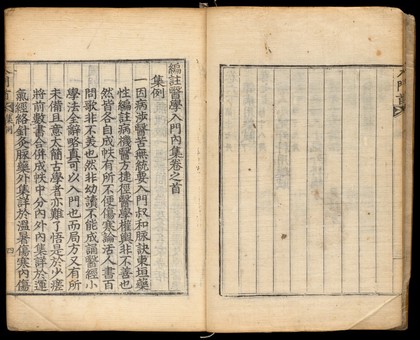 編註醫學入門內集卷之首
集例
一因病渉醫苦無統要入門叔和脉訣東垣藥
性編註病機醫方捷徑醫學權輿非不善也
然皆各自成帙有所不便傷寒論活人書百
問歌非不美也然非幼讀不能成誦醫經小
學法全辭略真可以入門也而局方又有所
未備且意太簡古學者亦難了悟是於少瘥
將前數書合併成帙中分內外內集詳於運
氣經絡針灸脉藥外集詳於溫暑傷寒內傷
入門首 集例 四